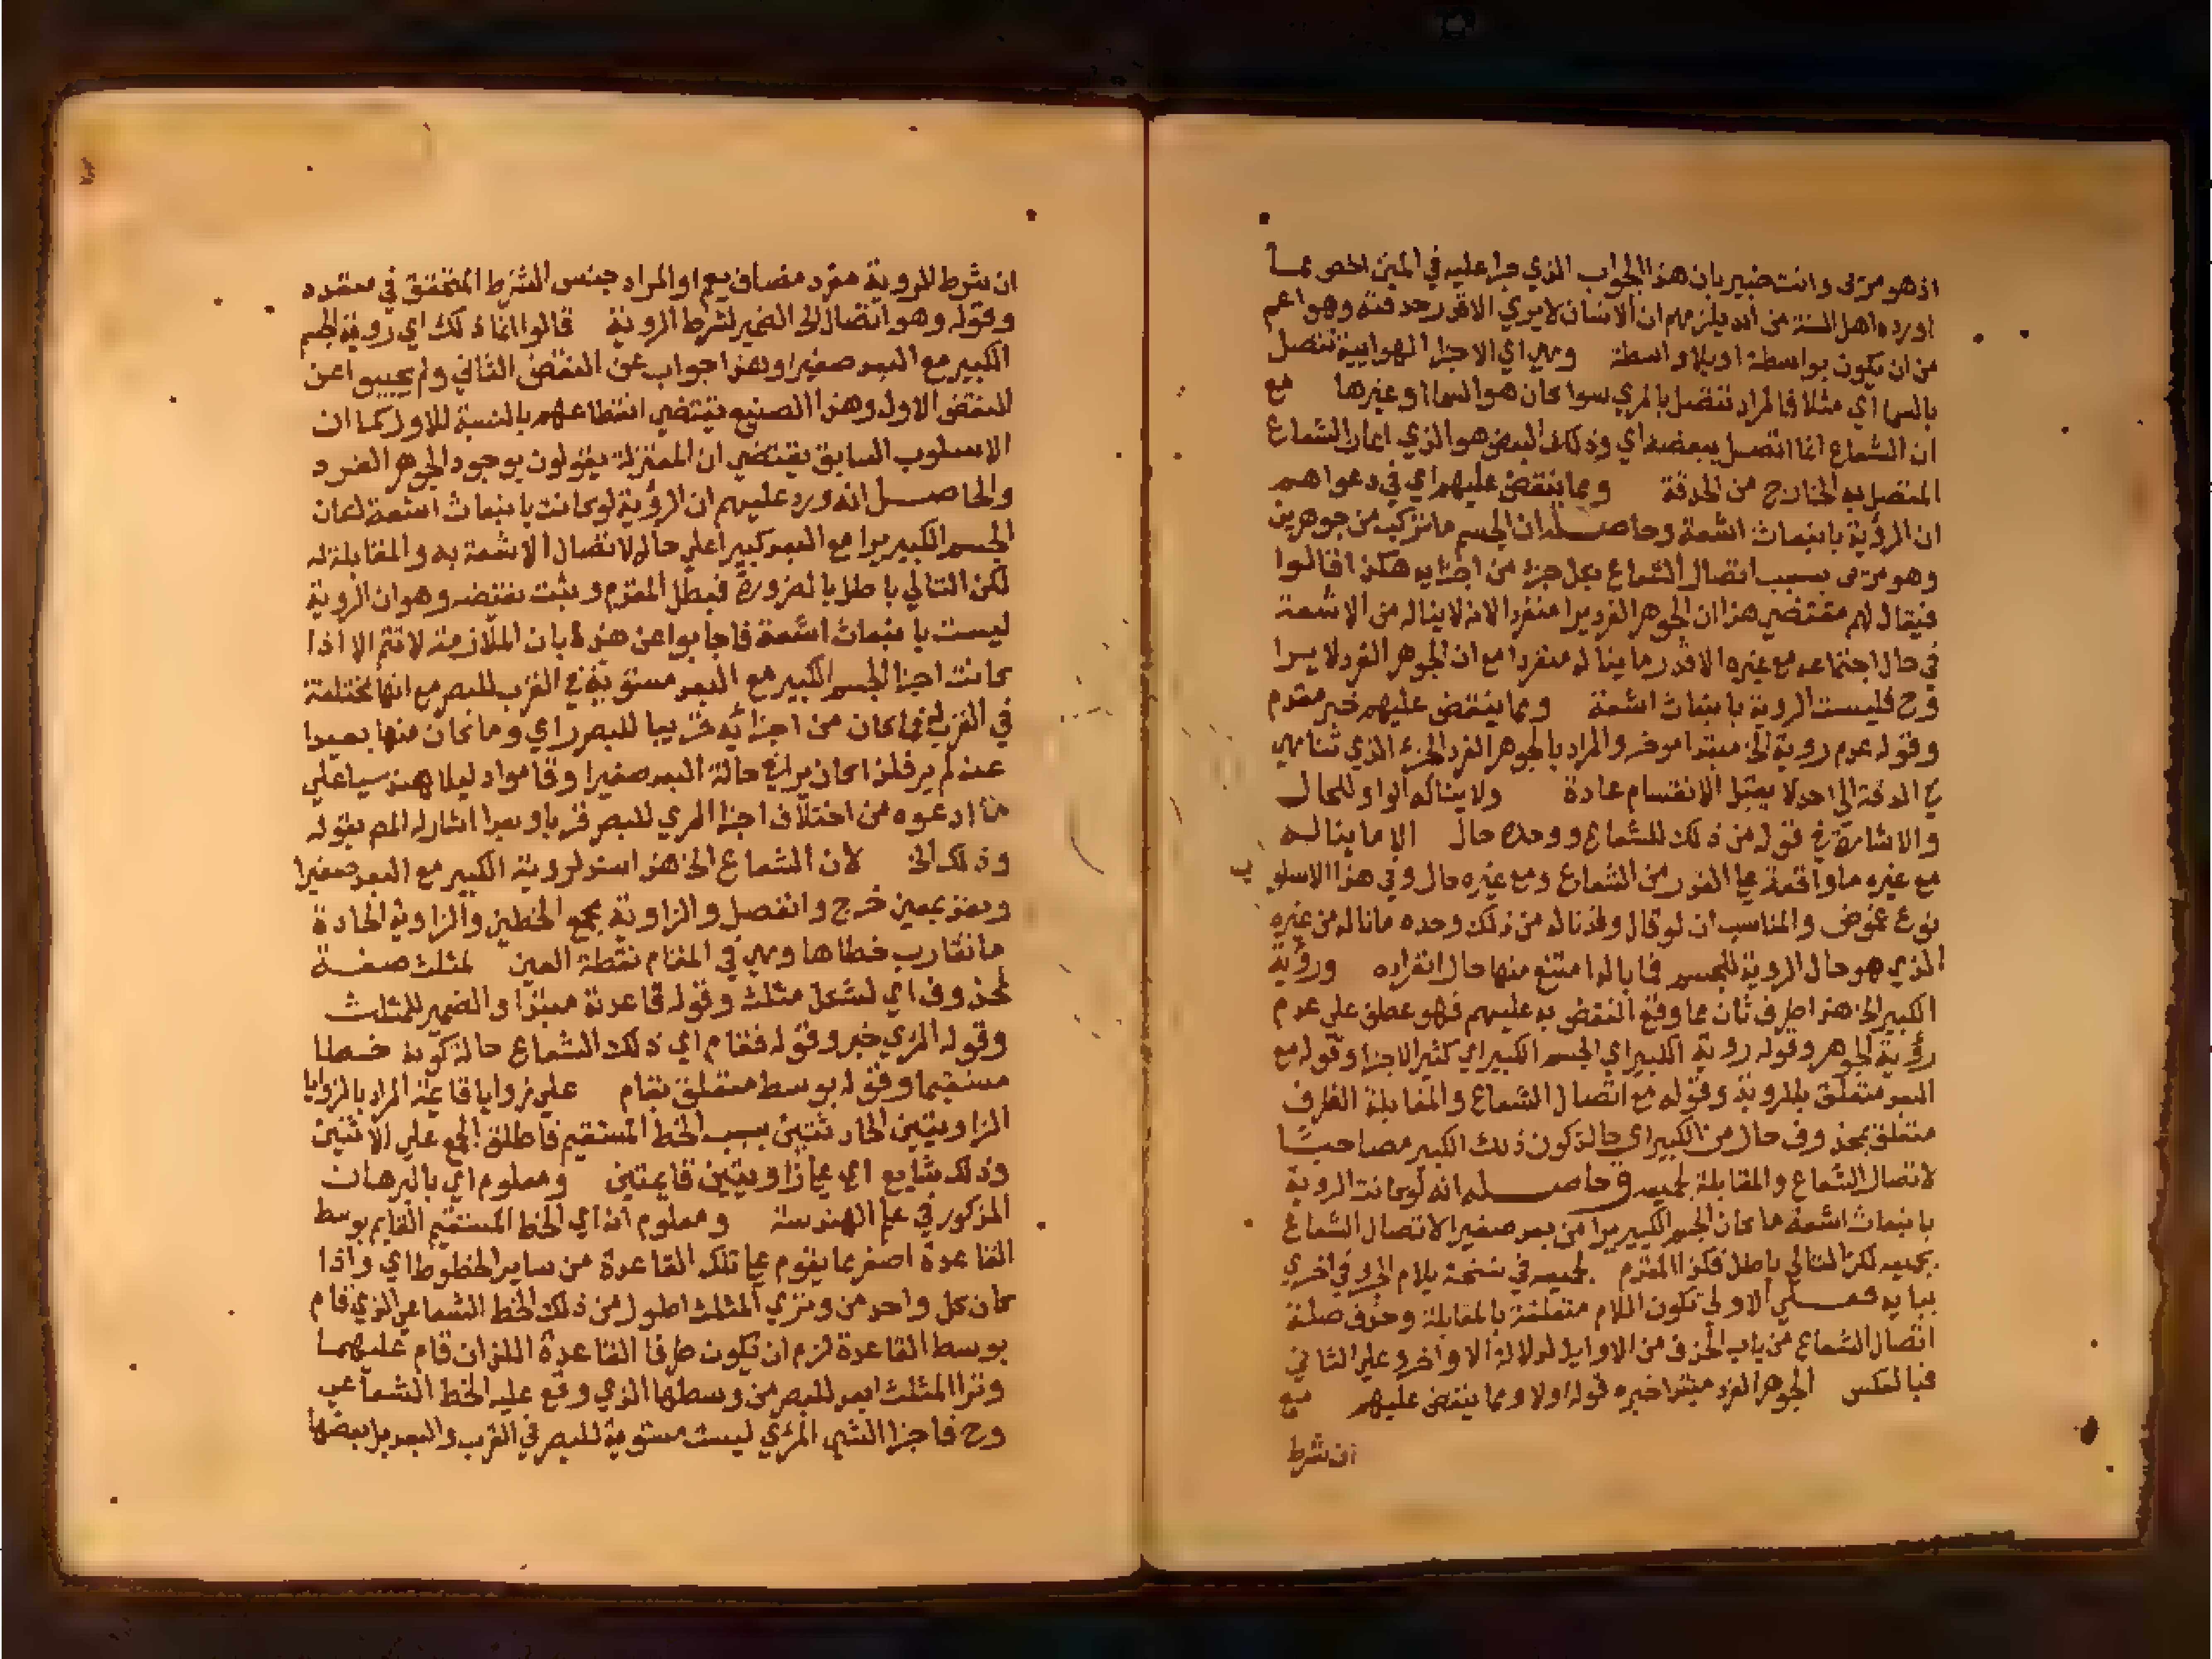 اذ هو مرئى وانت خبير بان هذا الجواب الذي جرا عليه في المتن اخص مما
اورده اهل السنة من انه يلزمهم ان الانسان لا يري الا قدر حدقته وهو اعم
من ان يكون بواسطة او بلا واسطة وهي اي الاجزا الهوايية تتصل
بالسما اي مثلا فالمراد تتصل بالمري سوا كان هو السما او غيرها مع
ان الشعاع انما اتصل ببعضه اي وذلك البعض هو الذي الشعاع
المتصل به الخارج من الحدقة ومما ينتقض عليهم اي في دعواهم
ان الرؤية بانبعاث اشعة وحاصله ان الجسم ما تركب من جوهرين
وهو مرئى بسبب اتصال الشعاع بكل جزء من اجزايه هكذا قالوا
فيقال لهم مقتضي هذا ان الجوهر الفرد يرا منفردا لانه لا يناله من الاشعة
في حال اجتماعه مع غيره الا قدر ما يناله منفردا مع ان الجوهر الفرد لا يرا
وح فليست الروية بانبعاث اشعة ومما ينتقض عليهم خبر مقدم
وقوله عدم روية الخ مبتدا موخر والمراد بالجوهر الفرد الجزء الذي تناهي
في الدقة الى حد لا يقبل الانقسام عادة ولا يناله الواو للحال
والاشارة في قوله من ذلك للشعاع ووحده حال الا ما يناله
مع غيره ما واقعة علي القدر من الشعاع ومع غيره حال وفي هذا الاسلوب
نوع غموض والمناسب ان لو قال وقد ناله من ذلك وحده ما ناله من غيره
الذي هو حال الروية للجسم فما باله امتنع منها حال انفراده ورؤية
الكبير الخ هذا طرف ثان مما وقع النقض به عليهم فهو عطف علي عدم
رؤية الجوهر وقوله روية الكبير اي الجسم الكبير اي كثير الاجزا وقوله مع
البعد متعلق بالروية وقوله مع اتصال الشعاع والمقابلة الظرف
متعلق بمحذوف حال من الكبير اي حالة كون ذلك الكبير مصاحبا
لاتصال الشعاع والمقابلة لجميعه وحاصله انه لو كانت الروية
بانبعاث اشعة ما كان الجسم الكبير يرا من بعد صغيرا لاتصال الشعاع
بجميعه لكن التالي باطل فكذا المقدم لجميعه في نسخة بلام الجر وفي اخري
ببايه فعلي الاولي تكون اللام متعلقة بالمقابلة وحذف صلة
اتصال الشعاع من باب الحذف من الاوايل لدلالة الاواخر وعلي الثاني
فبالعكس الجوهر الفرد مبتدا خبره قوله اولا ومما ينتقض عليهم مع
ان شرط
ان شرط الروية مفرد مضاف يعم او المراد جنس الشرط المتحقق في متعدد
وقوله وهو اتصال الخ الضمير لشرط الروية قالوا انما ذلك اي روية الجسم
الكبير مع البعد صغيرا وهذا جواب عن النقض الثاني ولم يجيبوا عن
النقض الاول وهذا الصنيع يقتضي انقطاعهم بالنسبة للاول كما ان
الاسلوب السابق يقتضي ان المعتزلة يقولون بوجود الجوهر الفرد
والحاصل انه ورد عليهم ان الرؤية لو كانت بانبعاث اشعة لكان
الجسم الكبير يرا مع البعد كبيرا علي حاله لاتصال الاشعة به والمقابلة له
لكن التالي باطل بالضرورة فبطل المقدم وثبت نقيضه وهو ان الروية
ليست بانبعاث اشعة فاجابوا عن هذه بان الملازمة لا تتم الا اذا
كانت اجزا الجسم الكبير مع البعد مستوية في القرب للبصر مع انها مختلفة
في القرب فما كان من اجزائه قريبا للبصر راي وما كان منها بعيدا
عنه لم ير فلذا كان يرا في حالة البعد صغيرا وقاموا دليلا هندسيا علي
ما ادعوه من اختلاف اجزا المري للبصر قربا وبعدا اشار له المص بقوله
وذلك الخ لان الشعاع الخ هذا سند لروية الكبير مع البعد صغيرا
ونفذ بمعني خرج وانفصل والزاوية مجمع الخطين والزاوية الحادة
ما تقارب خطاها وهي في المقام نقطة العين لمثلث صفة
لمحذوف اي لشكل مثلث وقوله قاعدته مبتدا والضمير للمثلث
وقوله المري خبر وقوله فقام اي ذلك الشعاع حالة كونه خطا
مستقيما وقوله بوسط متعلق بقام علي زوايا قايمة المراد بالزوايا
الزاويتين الحادثتين بسبب الخط المستقيم فاطلق الجمع علي الاثنين
وذلك شايع اي علي زاويتين قايمتين ومعلوم اي بالبرهان
المذكور في علم الهندسة ومعلوم انه اي الخط المستقيم القايم بوسط
القاعدة اصغر مما يقوم علي تلك القاعدة من ساير الخطوط اي واذا
كان كل واحد من وتري المثلث اطول من ذلك الخط الشعاعي الذي قام
بوسط القاعدة لزم ان يكون طرفا القاعدة اللذان قام عليهما
وترا المثلث ابعد للبصر من وسطها الذي وقع عليه الخط الشعاعي
وح فاجزا الشي المرئي ليست مستوية للبصر في القرب والبعد بل بعضها